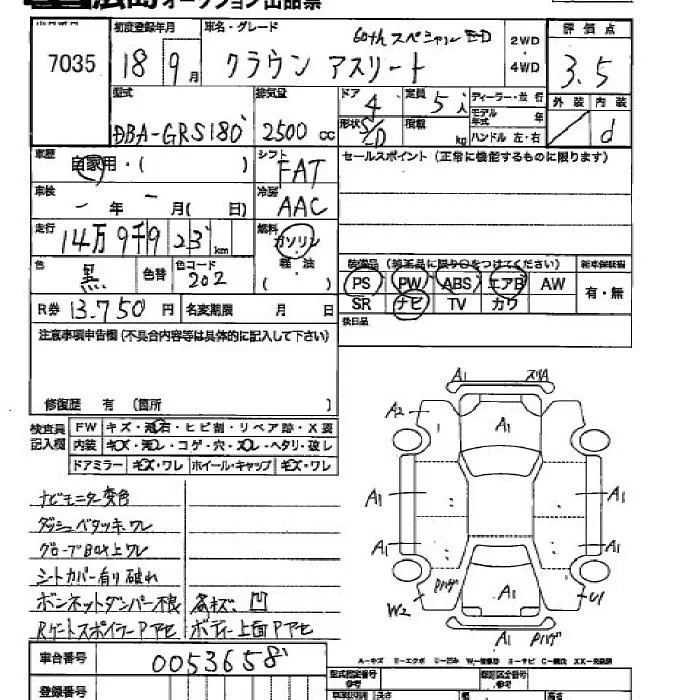 広島 オークション 出品票
初度登録年月 車名・グレード 60thスペシャルED 2WD 4WD 評価点
7035 18 9月 クラウン アスリート 3.5
型式 排気量 ドア 4 定員 5人 ディーラー・並行 外装 内装
DBA-GRS180 2500cc 形状 SD 積載 kg モデル年式 年 ハンドル 左・右 d
車歴 自家用・( ) シフト FAT セールスポイント (正常に機能するものに限ります)
車検 ー年 ー月( 日) 冷房 AAC
走行 14万9千9 23 km 燃料 ガソリン
色 黒 色替 色コード 202 軽・油 ( )
装備品 (純正品に限り○をつけてください) 新車保証書
PS PW ABS エアB AW 有・無
SR ナビ TV カワ
R券 13.750円 名変期限 月 日 後日品
注意事項申告欄 (不具合内容等は具体的に記入して下さい)
修復歴 有 (箇所 )
検査員記入欄 FW キズ・飛石・ヒビ割・リペア跡・X要
内装 キズ・汚レ・コゲ・穴・スレ・ヘタリ・破レ
ドアミラー キズ・ワレ ホイール・キャップ キズ・ワレ
ナビモニター変色
ダッシュベタツキ、ワレ
グローブBOX上ワレ
シートカバー有り破れ
ボンネットダンパー不良 各キズ、凹
Rゲートスポイラー Pアセ ボディー上面Pアセ
A1 スリA
A2 A1
A1 A1
A1 A1
Pハゲ A1
W2 U1
A1 Pハゲ
A-キズ E-エクボ U-凹ミ W-補修跡 S-サビ C-腐食 XX-交換済
車台番号 0053658
型式指定番号 参考 類別区分番号 参考
登録番号 長さ 幅 高さ